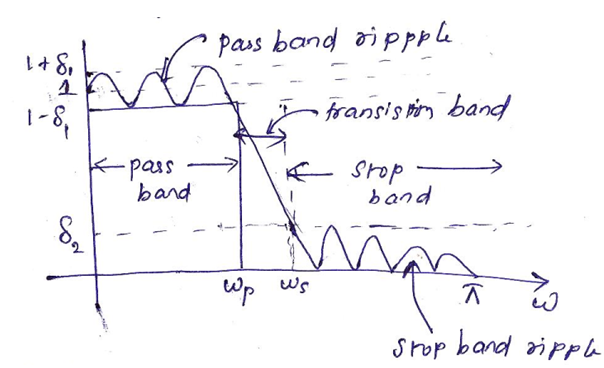 pass band rippple
1+δ₁
1
1-δ₁
transistion band
pass
band
stop
band
δ₂
ωp
ωs
π
ω
stop band ripple